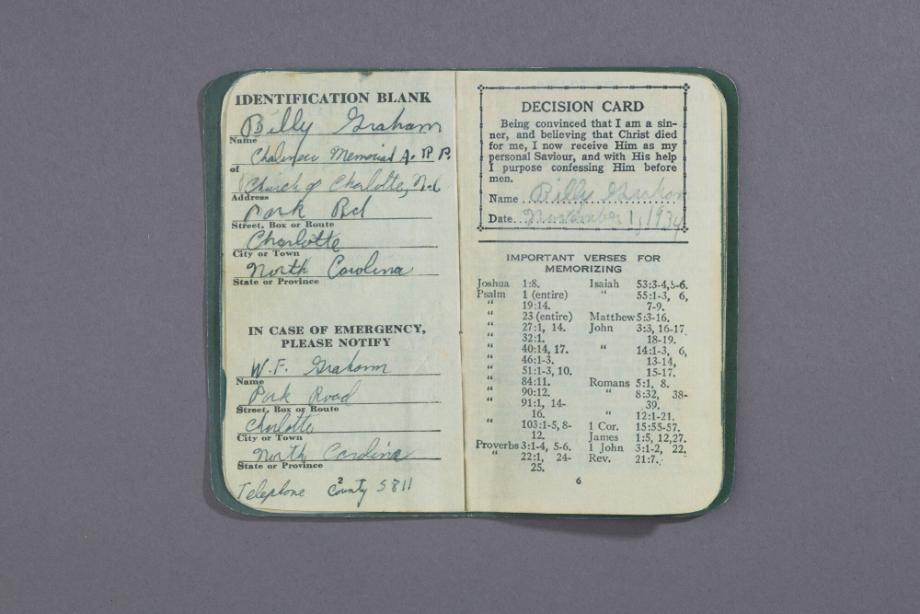 IDENTIFICATION BLANK
Billy Graham
Name
Chalmers Memorial A. R. P.
of
Church of Charlotte, N.C
Address
Park Rd
Street, Box or Route
Charlotte
City or Town
North Carolina
State or Province
IN CASE OF EMERGENCY,
PLEASE NOTIFY
W.F. Graham
Name
Park Road
Street, Box or Route
Charlotte
City or Town
North Carolina
State or Province
Telephone County 5811
2
DECISION CARD
Being convinced that I am a sin-
ner, and believing that Christ died
for me, I now receive Him as my
personal Saviour, and with His help
I purpose confessing Him before
men.
Name Billy Graham
Date November 1, 1934
IMPORTANT VERSES FOR
MEMORIZING
Joshua 1:8.
Psalm 1 (entire)
" 19:14.
" 23 (entire)
" 27:1, 14.
" 32:1.
" 40:14, 17.
" 46:1-3.
" 51:1-3, 10.
" 84:11.
" 90:12.
" 91:1, 14-
16.
" 103:1-5, 8-
12.
Proverbs 3:1-4, 5-6.
" 22:1, 24-
25.
Isaiah 53:3-4, 5-6.
" 55:1-3, 6,
7-9.
Matthew 5:3-16.
John 3:3, 16-17
18-19.
" 14:1-3, 6,
13-14,
15-17.
Romans 5:1, 8.
" 8:32, 38-
39.
" 12:1-21.
1 Cor. 15:55-57.
James 1:5, 12,27.
1 John 3:1-2, 22.
Rev. 21:7.
6